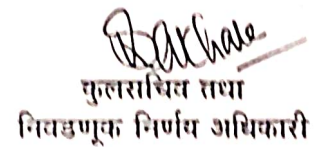 कुलसचिव तथा
निवडणूक निर्णय अधिकारी